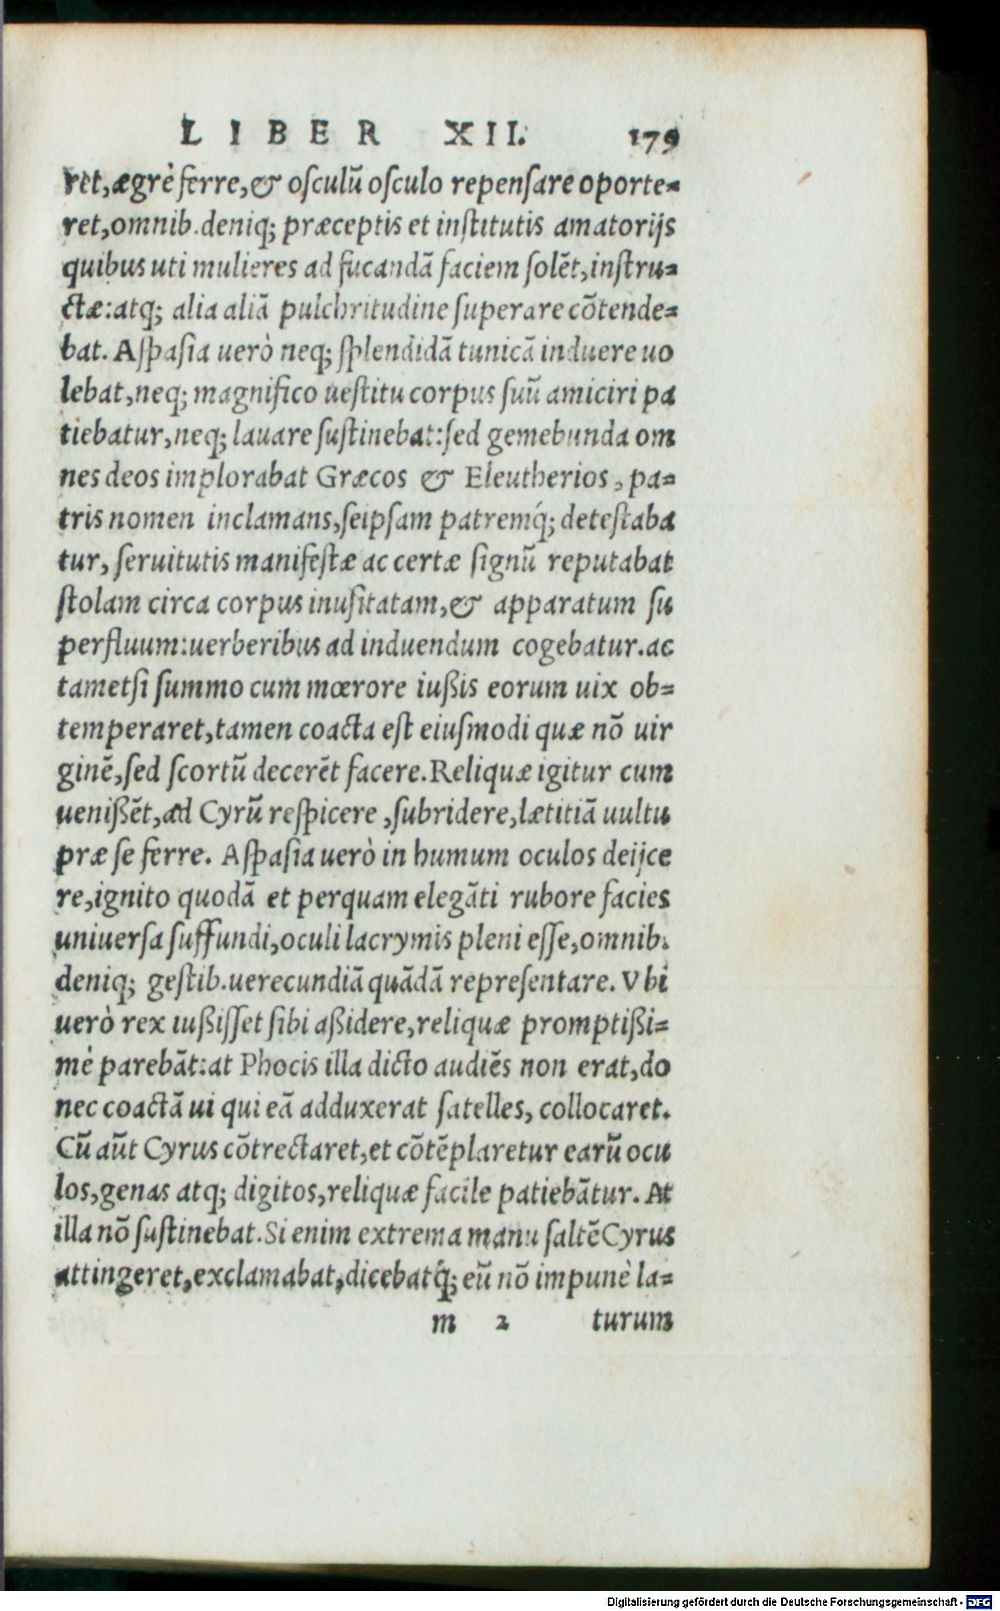 LIBER XII. 179
ret, ægrè ferre, & osculū osculo repensare oporte=
ret, omnib. deniq; præceptis et institutis amatorijs
quibus uti mulieres ad fucandā faciem solēt, instru=
ctæ: atq; alia aliā pulchritudine superare cōtende=
bat. Aspasia uerò neq; splendidā tunicā induere uo
lebat, neq; magnifico uestitu corpus suū amiciri pa
tiebatur, neq; lauare sustinebat: sed gemebunda om
nes deos implorabat Græcos & Eleutherios, pa=
tris nomen inclamans, seipsam patremq́; detestaba
tur, seruitutis manifestæ ac certæ signū reputabat
stolam circa corpus inusitatam, & apparatum su
perfluum: uerberibus ad induendum cogebatur. ac
tametsi summo cum mœrore iußis eorum uix ob=
temperaret, tamen coacta est eiusmodi quæ nō uir
ginē, sed scortū decerēt facere. Reliquæ igitur cum
uenißēt, ad Cyrū respicere, subridere, lætitiā uultu
præ se ferre. Aspasia uerò in humum oculos deijce
re, ignito quodā et perquam elegāti rubore facies
uniuersa suffundi, oculi lacrymis pleni esse, omnib.
deniq; gestib. uerecundiā quādā representare. Vbi
uerò rex iußisset sibi aßidere, reliquæ promptißi=
mè parebāt: at Phocis illa dicto audiēs non erat, do
nec coactā ui qui eā adduxerat satelles, collocaret.
Cū aūt Cyrus cōtrectaret, et cōtēplaretur earū ocu
los, genas atq; digitos, reliquæ facile patiebātur. At
illa nō sustinebat. Si enim extrema manu saltē Cyrus
attingeret, exclamabat, dicebatq́; eū nō impunè la=
m 2 turum
Digitalisierung gefördert durch die Deutsche Forschungsgemeinschaft - DFG